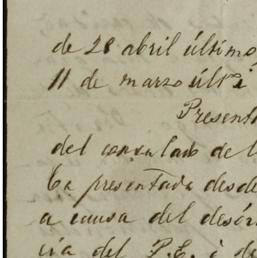 de 28 abril último
11 de marzo últi
Present
del consulado de l
ta presentada desde
a causa del desór
cia del P.E. i de